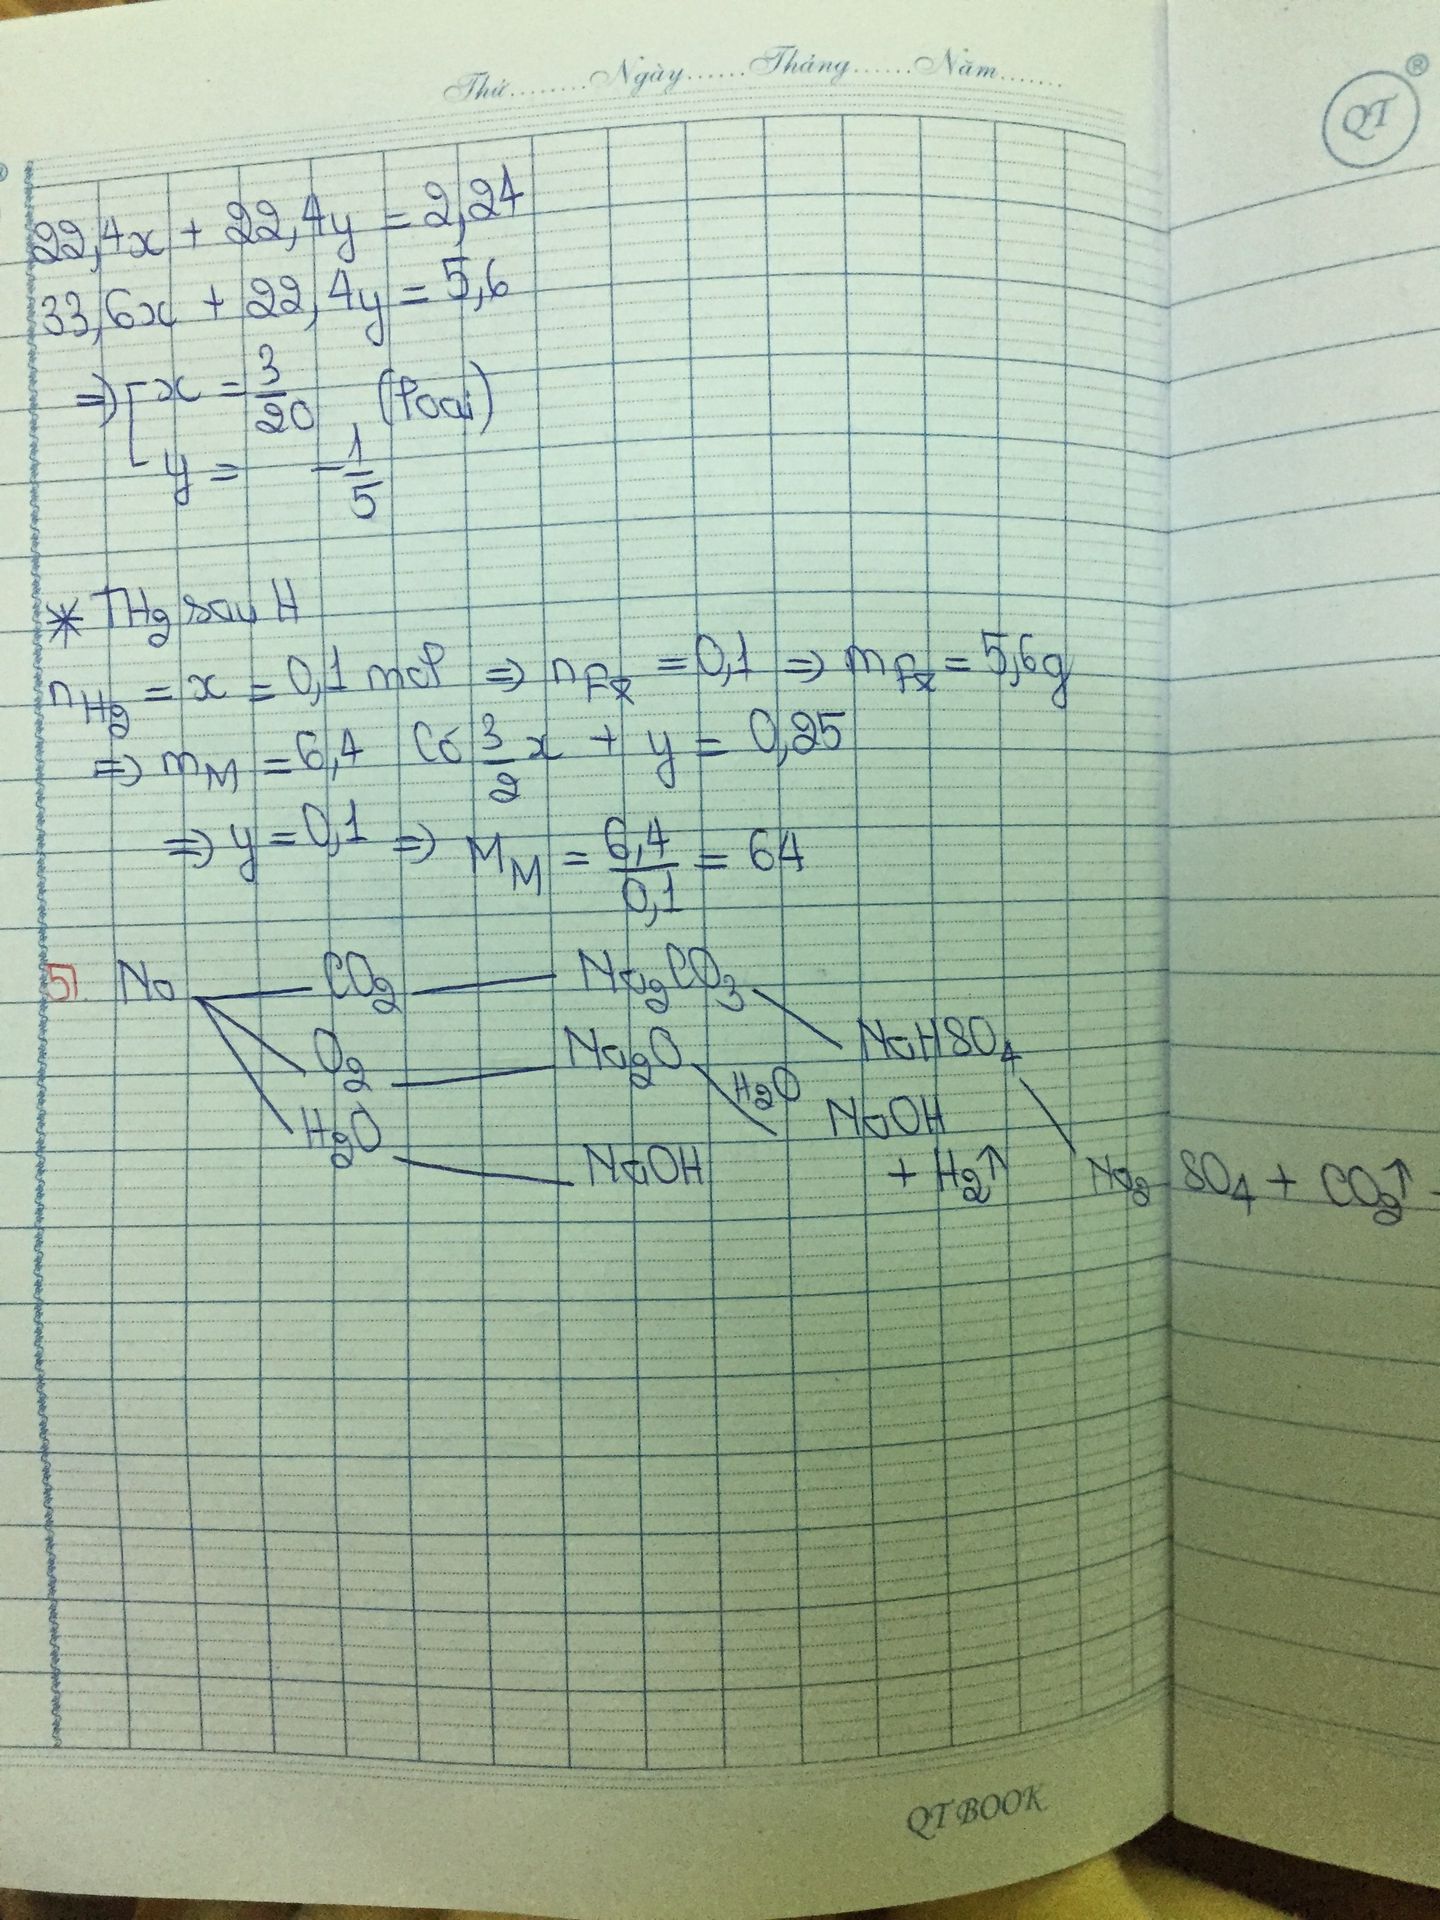 Thứ........Ngày......Tháng......Năm.......
QT
22,4x + 22,4y = 2,24
33,6x + 22,4y = 5,6
=> [ x = 3/20 (loại)
y = -1/5
* TH2 sau H
nH2 = x = 0,1 mol => nFe = 0,1 => mFe = 5,6g
=> mM = 6,4 Có 3/2 x + y = 0,25
=> y = 0,1 => MM = 6,4/0,1 = 64
5). Na CO2 Na2CO3
O2 Na2O NaHSO4
H2O H2O NaOH
NaOH + H2↑ Na2SO4 + CO2↑
QT BOOK